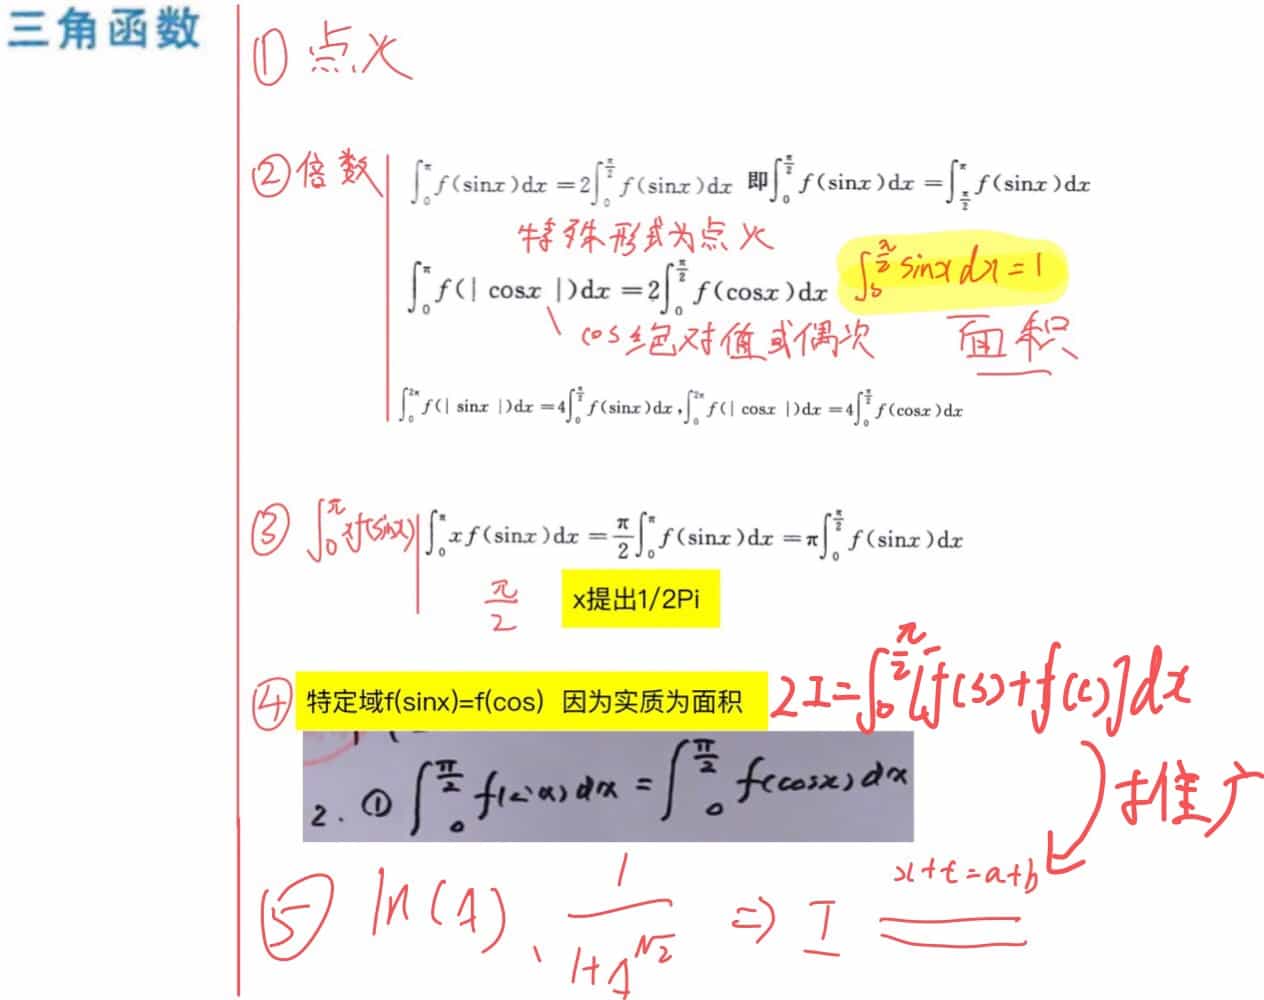 三角函数
① 点火
② 倍数
∫₀^π f(sinx)dx = 2∫₀^{π/2} f(sinx)dx 即∫₀^{π/2} f(sinx)dx = ∫_{π/2}^π f(sinx)dx
特殊形式为点火
∫₀^π f(| cosx |)dx = 2∫₀^{π/2} f(cosx)dx ∫₀^{π/2} sinx dx = 1
cos绝对值或偶次 面积
∫₀^{2π} f(| sinx |)dx = 4∫₀^{π/2} f(sinx)dx, ∫₀^{2π} f(| cosx |)dx = 4∫₀^{π/2} f(cosx)dx
③ ∫₀^π xf(sinx) ∫₀^π xf(sinx)dx = π/2 ∫₀^π f(sinx)dx = π∫₀^{π/2} f(sinx)dx
π/2 x提出1/2Pi
④ 特定域f(sinx)=f(cos) 因为实质为面积 2I=∫₀^{π/2} [f(s)+f(c)]dx
2. ① ∫₀^{π/2} f(sinx)dx = ∫₀^{π/2} f(cosx)dx
推广
x+t=a+b
⑤ ln(A)、 1/(1+A^{√2}) ⇒ I =